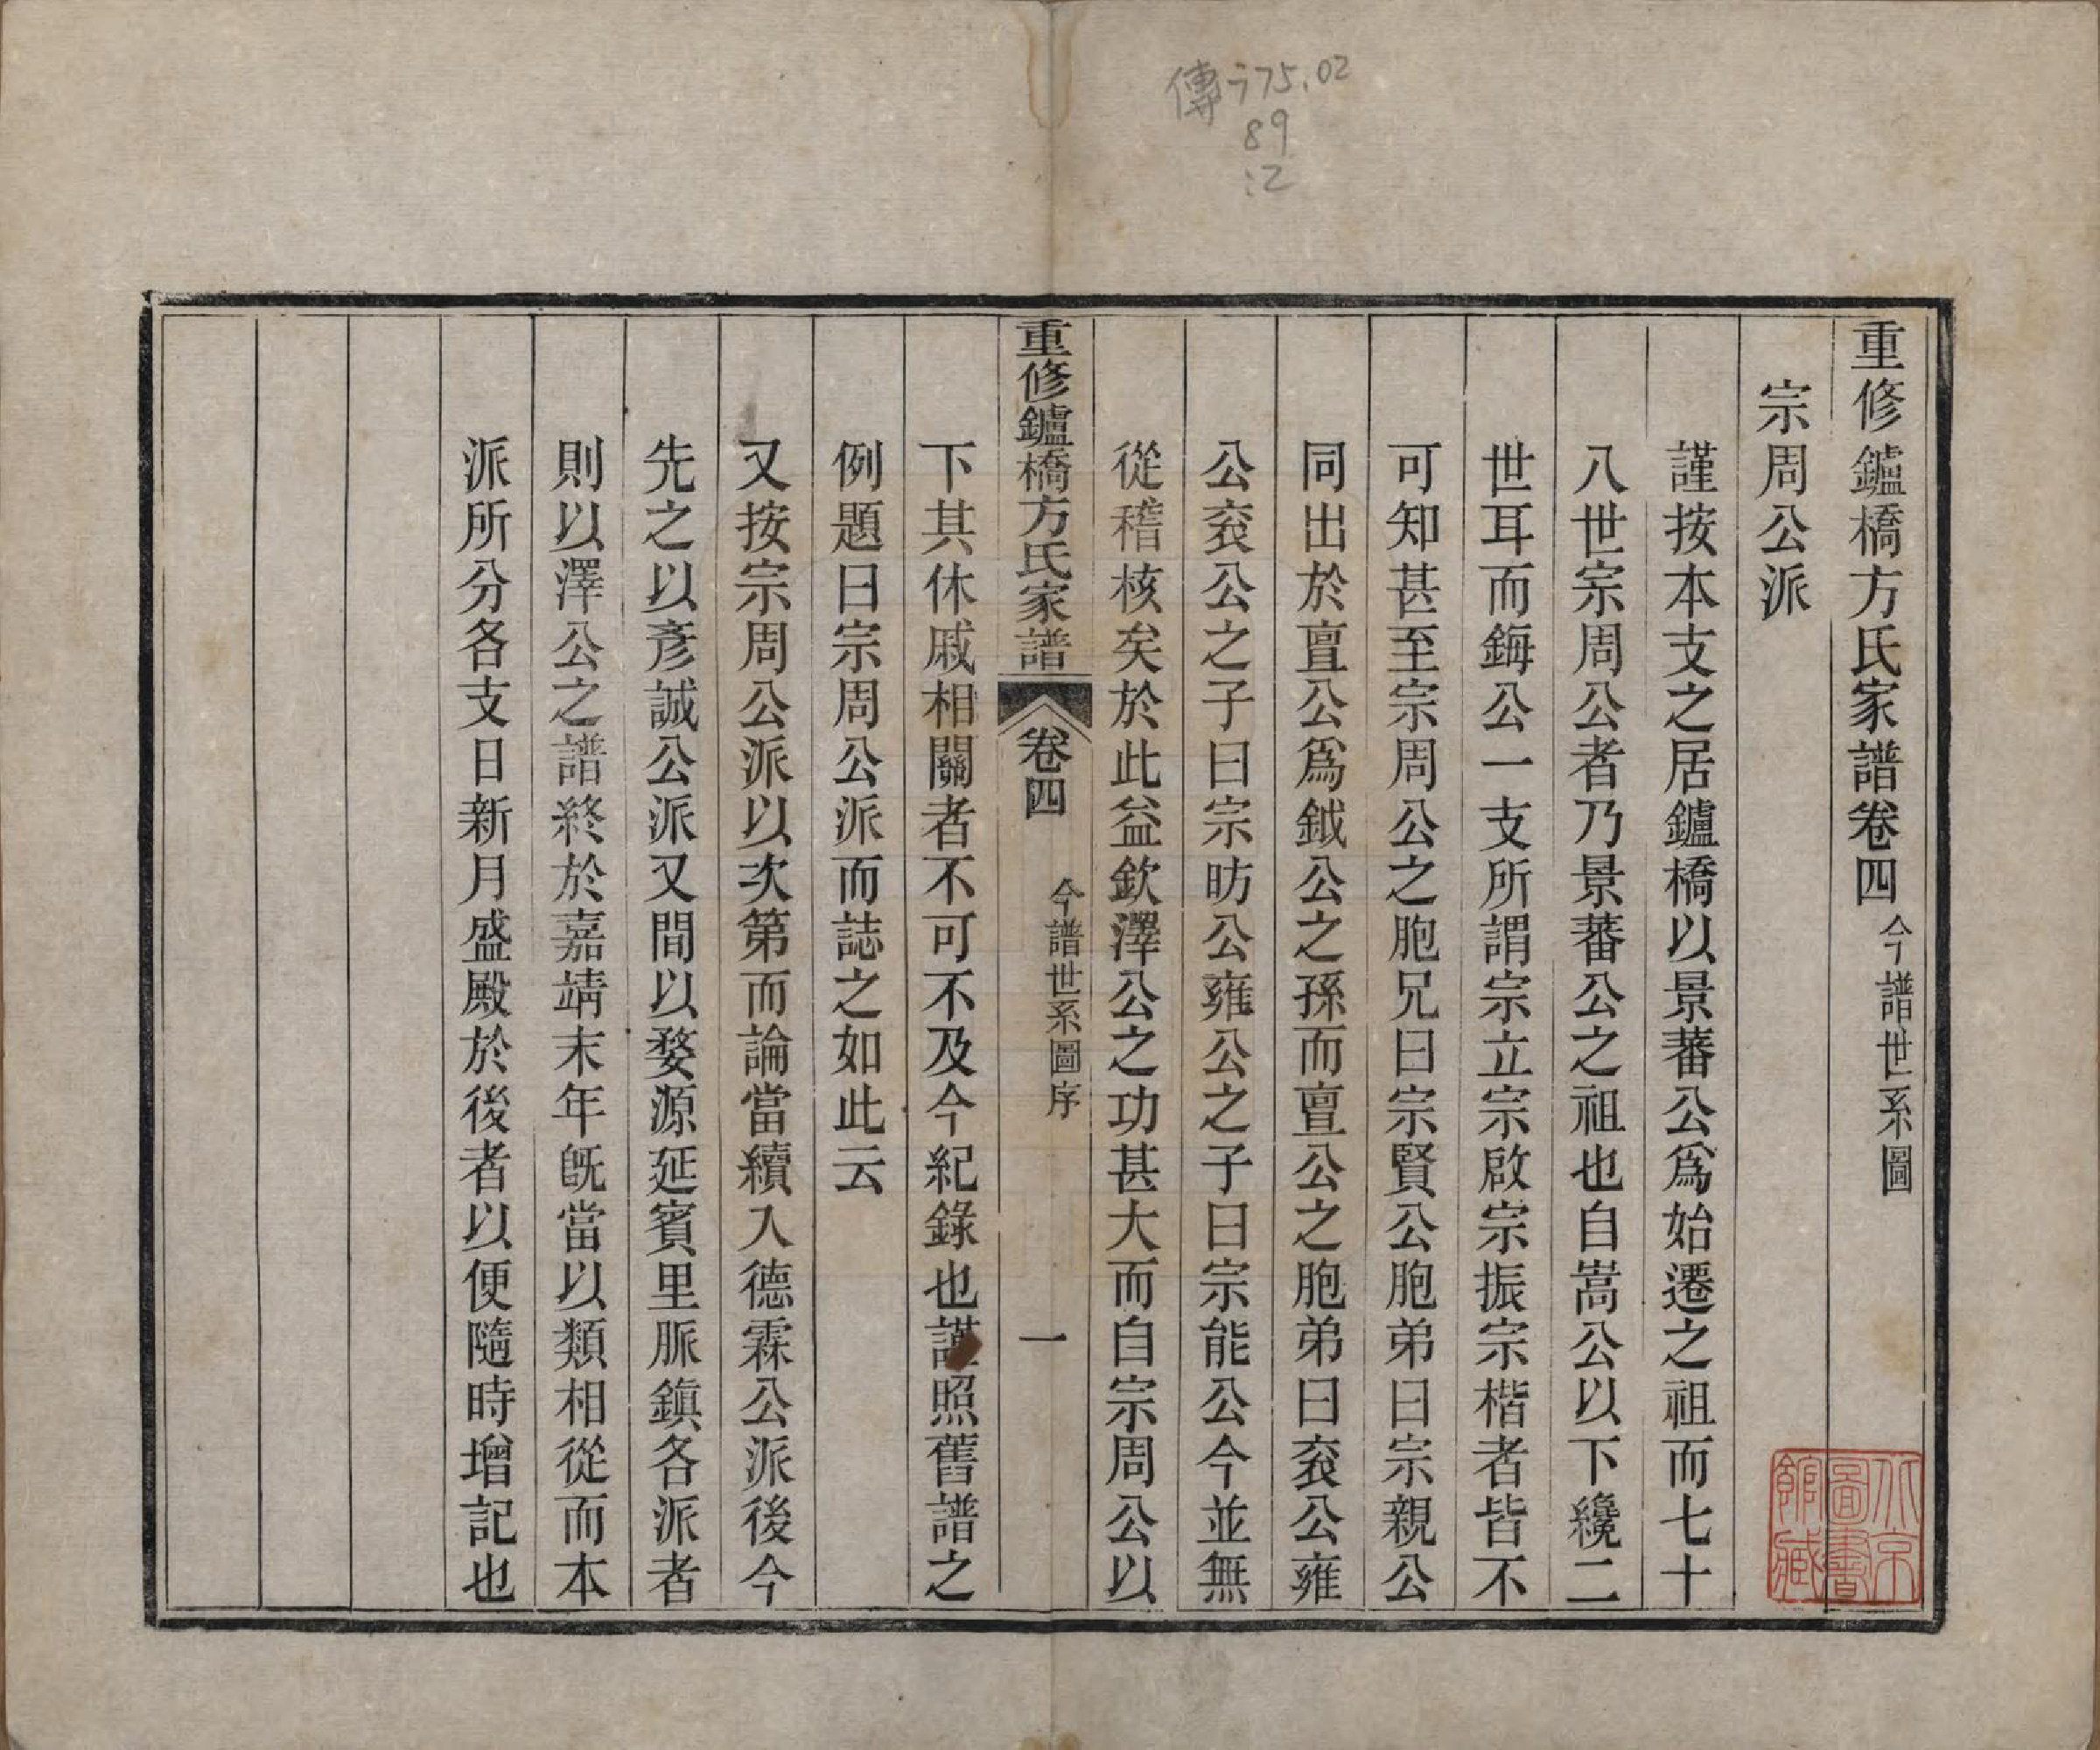 傳775.02
89
:2
重修鑪橋方氏家譜卷四 今譜世系圖
宗周公派
謹按本支之居鑪橋以景蕃公爲始遷之祖而七十
八世宗周公者乃景蕃公之祖也自嵩公以下纔二
世耳而鋂公一支所謂宗立宗啟宗振宗楷者皆不
可知甚至宗周公之胞兄曰宗賢公胞弟曰宗親公
同出於亶公爲鉞公之孫而亶公之胞弟曰袞公雍
公袞公之子曰宗昉公雍公之子曰宗能公今並無
從稽核矣於此益欽澤公之功甚大而自宗周公以
重修鑪橋方氏家譜 卷四 今譜世系圖序 一
下其休戚相關者不可不及今紀錄也謹照舊譜之
例題曰宗周公派而誌之如此云
又按宗周公派以次第而論當續入德霖公派後今
先之以彥誠公派又間以婺源延賓里脈鎮各派者
則以澤公之譜終於嘉靖末年旣當以類相從而本
派所分各支日新月盛殿於後者以便隨時增記也
北京圖書館藏